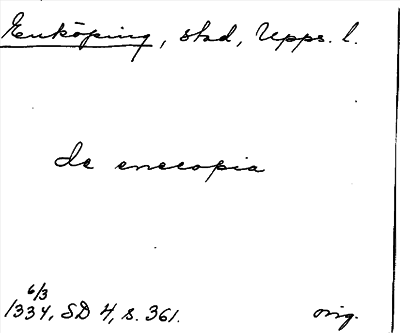 Enköping, stad, Upps. l.
de enecopia
6/3
1334, SD 4, s. 361. orig.